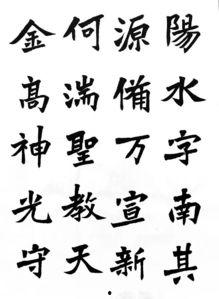 陽水字南其
源備万宣新
何湍聖教天
金高神光守